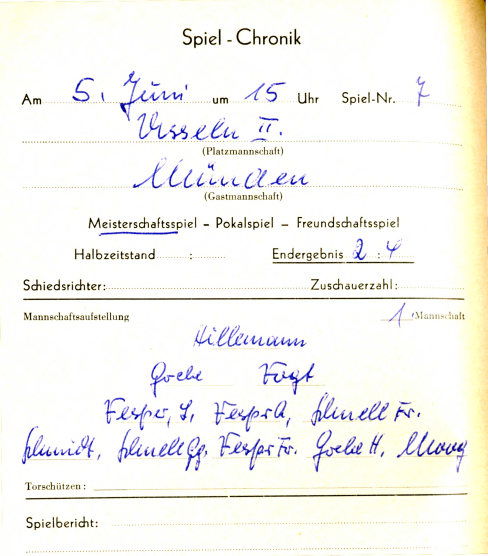 Spiel - Chronik
Am 5. Juni um 15 Uhr Spiel-Nr. 7
Usseln II.
(Platzmannschaft)
Münden
(Gastmannschaft)
Meisterschaftsspiel - Pokalspiel - Freundschaftsspiel
Halbzeitstand : Endergebnis 2 : 4
Schiedsrichter: Zuschauerzahl:
Mannschaftsaufstellung 1. Mannschaft
Hillemann
Goebe Vogt
Vesper, L. Vesper A, Schnell Fr.
Schmidt, Schnell Gg. Vesper Fr. Goebe H,
Torschützen:
Spielbericht: